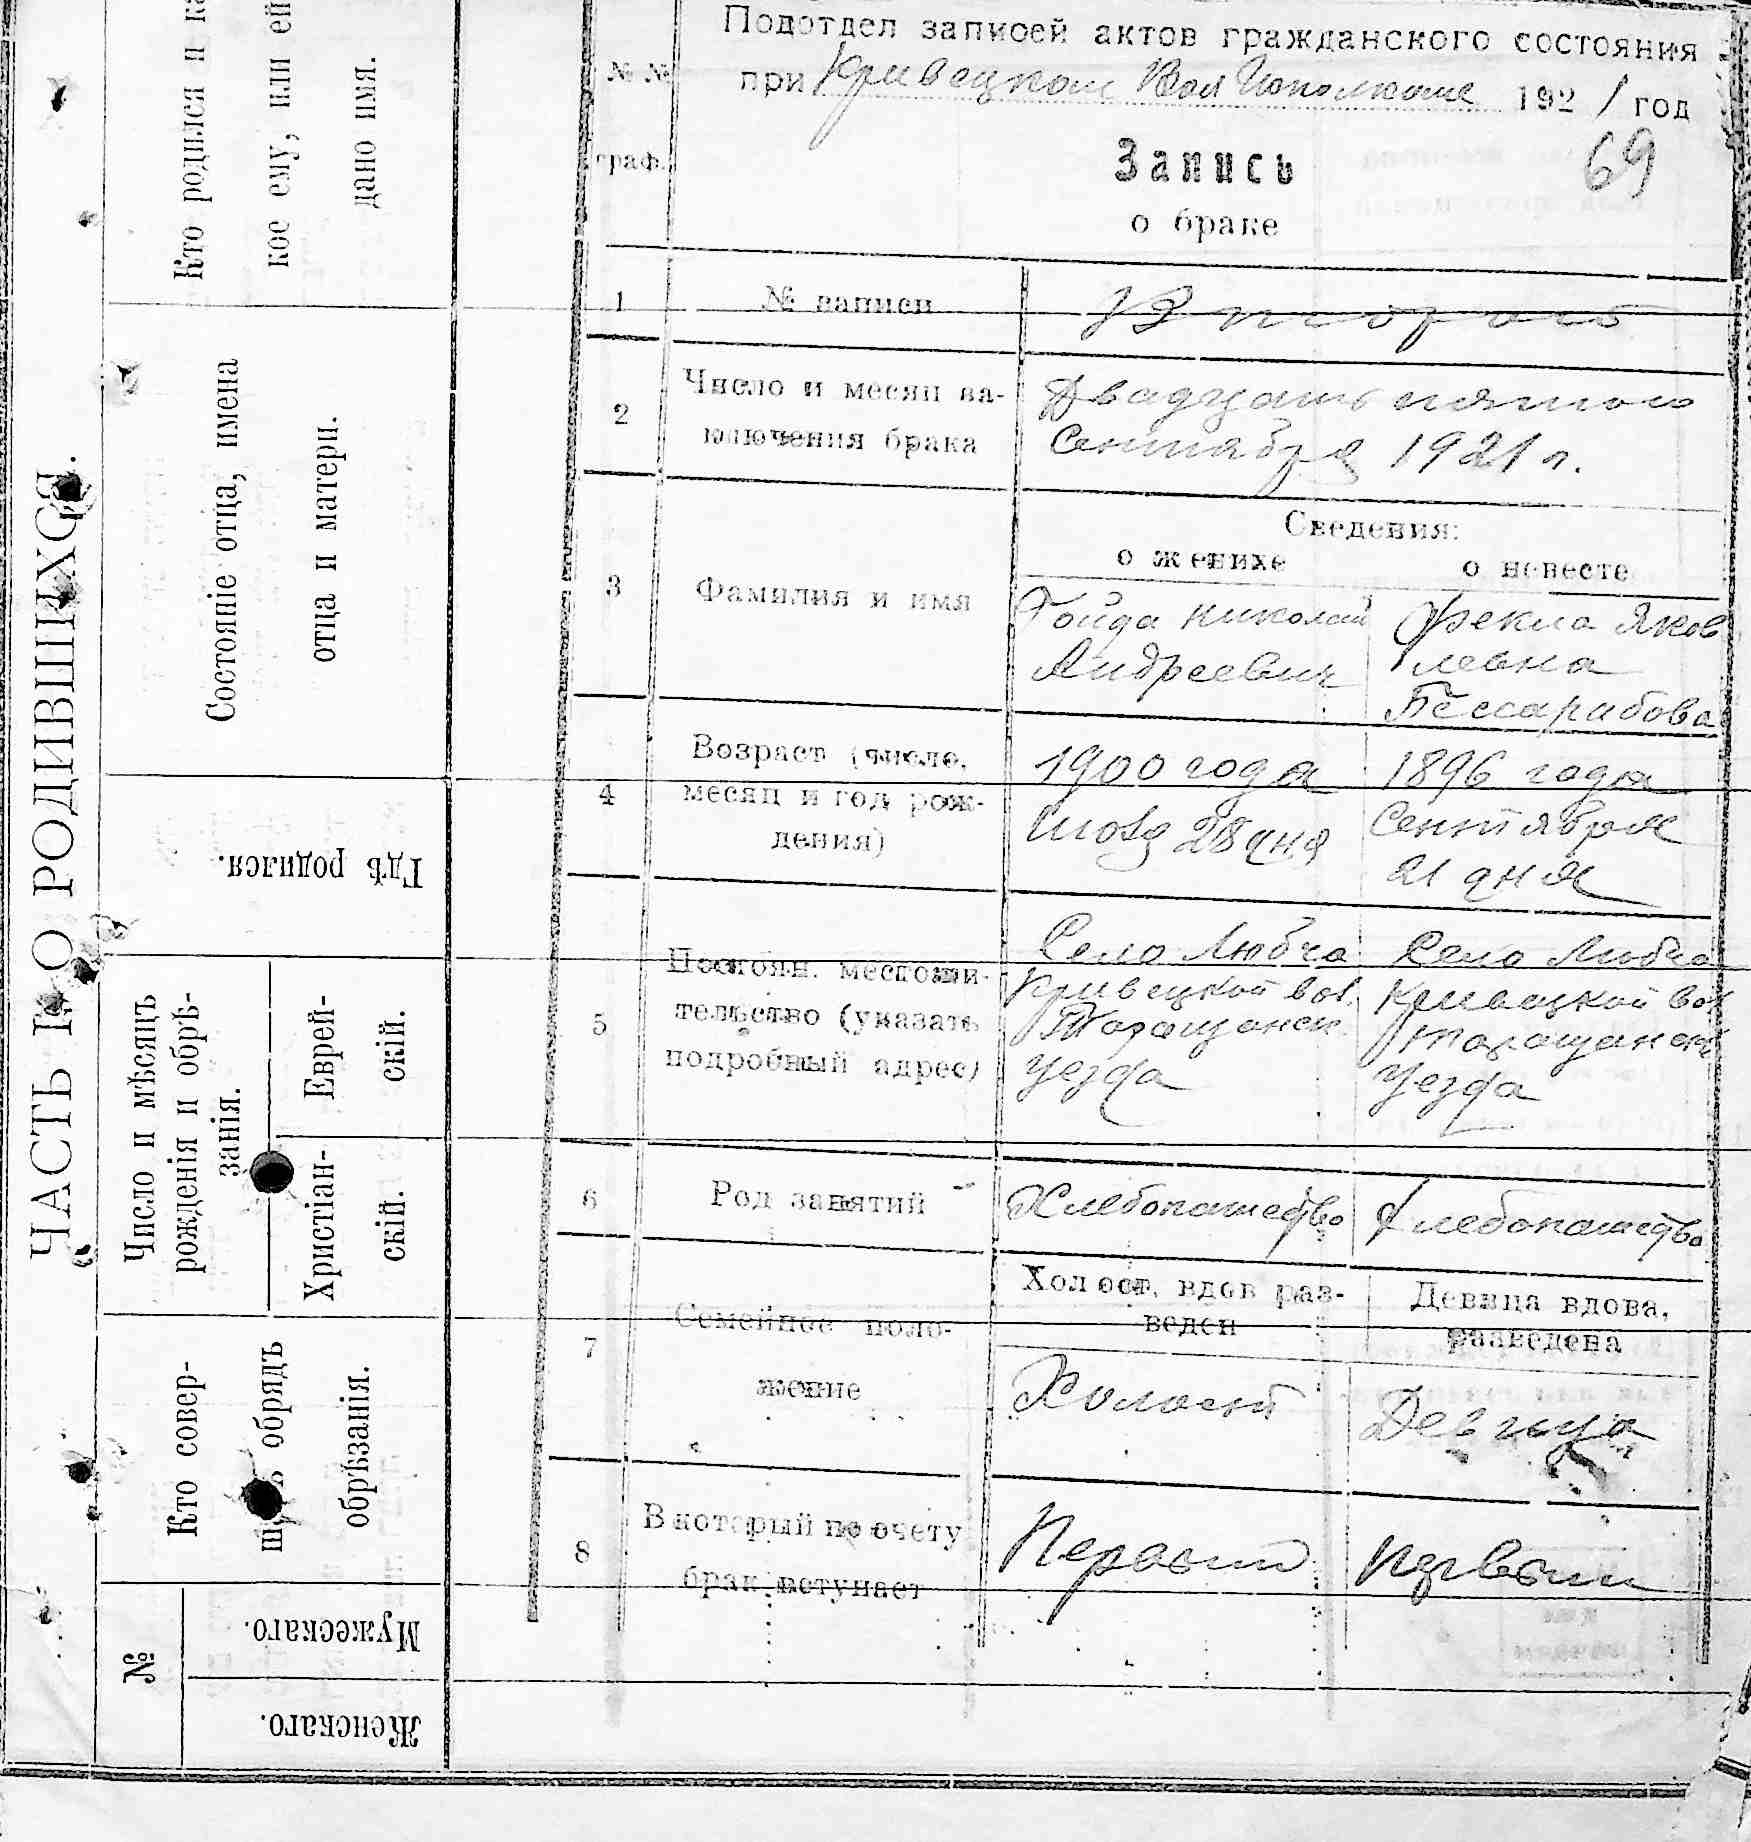 ЧАСТЬ I О РОДИВШИХСЯ.
Кто родился и ка
кое ему, или ей
дано имя.
Состояніе отца, имена
отца и матери.
Гдѣ родился.
Число и мѣсяцъ
рожденія и обрѣ-
занія.
Еврей-
скій.
Христіан-
скій.
Кто совер-
шалъ обрядъ
обрѣзанія.
№
Мужескаго.
Женскаго.
№ №
граф.
Подотдел записей актов гражданского состояния
при Кривецком Вол Исполкоме 1921 год
69
Запись
о браке
1 № записи Второй
2 Число и месяц за-
ключения брака
Двадцать пятого
Сентября 1921 г.
Сведения:
о женихе о невесте
3 Фамилия и имя
Гойда Николай
Андреевич
Фекла Яков
левна
Бессарабова
4 Возраст (число,
месяц и год рож-
дения)
1900 года
28 дня
1896 года
Сентября
21 дня
5 Постоян. местожи-
тельство (указать
подробный адрес)
Село Любча
Кривецкой вол.
Таращанск.
уезда
Село Любча
Кривецкой вол
Таращанск
уезда
6 Род занятий Хлебопашество Хлебопашество
7 Семейное поло-
жение
Холост, вдов раз-
веден
Девица вдова,
разведена
Холост Девица
8 В который по счету
брак вступает
Первый Первый